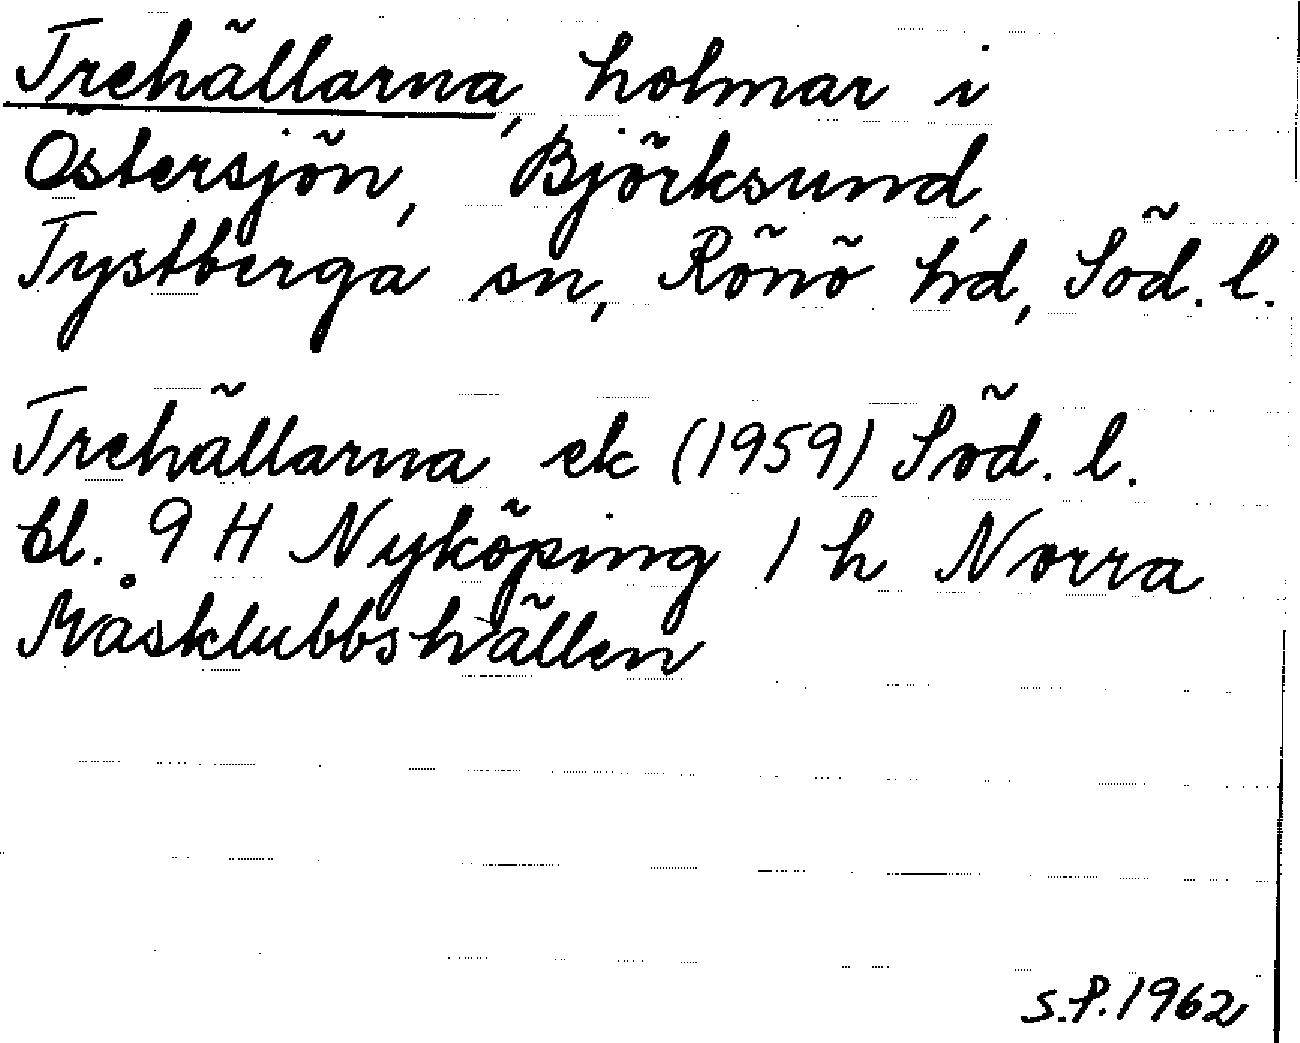 Trehällarna, holmar i
Östersjön, Björksund,
Tystberga sn, Rönö hd, Söd. l.
Trehällarna ek (1959) Söd. l.
bl. 9 H Nyköping 1 h Norra
Måsklubbshällen
S.P. 1962